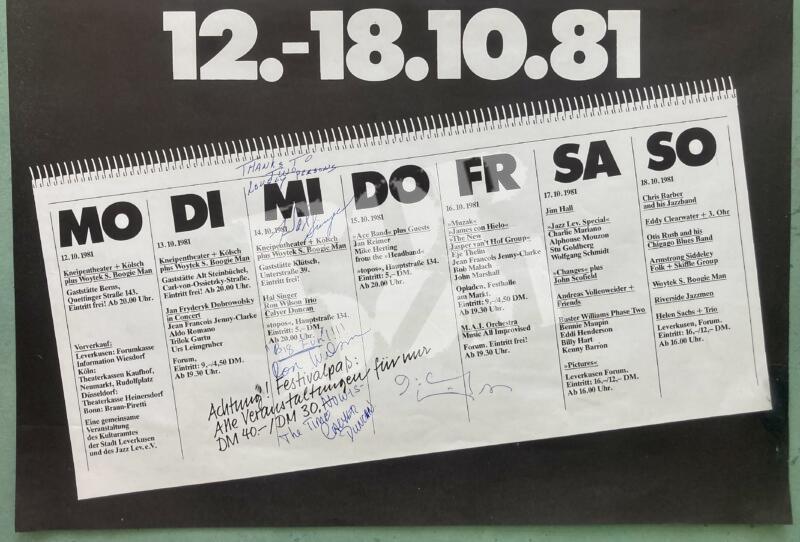 12.-18.10.81
THANKS TO
LOVELY PERSONS
Hal Singer
MO
12.10.1981
Kneipentheater + Kölsch
plus Woytek S. Boogie Man
Gaststätte Berns,
Quettinger Straße 143.
Eintritt frei! Ab 20.00 Uhr.
Vorverkauf:
Leverkusen: Forumkasse
Information Wiesdorf
Köln:
Theaterkassen Kaufhof,
Neumarkt, Rudolfplatz
Düsseldorf:
Theaterkasse Heinersdorf
Bonn: Braun-Piretti
Eine gemeinsame
Veranstaltung
des Kulturamtes
der Stadt Leverkusen
und des Jazz Lev. e.V.
DI
13.10.1981
Kneipentheater + Kölsch
plus Woytek S. Boogie Man
Gaststätte Alt Steinbüchel,
Carl-von-Ossietzky-Straße.
Eintritt frei! Ab 20.00 Uhr.
Jan Fryderyk Dobrowolsky
in Concert
Jean Francois Jenny-Clarke
Aldo Romano
Trilok Gurtu
Urs Leimgruber
Forum.
Eintritt: 9,-/4,50 DM.
Ab 19.30 Uhr.
MI
14.10.1981
Kneipentheater + Kölsch
plus Woytek S. Boogie Man
Gaststätte Klütsch,
Unterstraße 39.
Eintritt frei!
Hal Singer
Ron Wilson Trio
Calyer Duncan
»topos«, Hauptstraße 134.
Eintritt: 5,- DM.
Ab 20.00 Uhr
BIG FUN!!!!
Ron Wilson
Achtung! Festivalpaß:
Alle Veranstaltungen für nur
DM 40.-/DM 30.
The Time Now Is
Calyer
Duncan
DO
15.10.1981
»Ace Band« plus Guests
Jan Reimer
Mike Herting
from the »Headband«
»topos«, Hauptstraße 134.
Eintritt: 5,- DM.
Ab 20.00 Uhr
FR
16.10.1981
»Muzak«
»James con Hielo«
»The New
Jasper van't Hof Group«
Eje Thelin
Jean Francois Jenny-Clarke
Bob Malach
John Marshall
Opladen, Festhalle
am Markt.
Eintritt: 9,-/4,50 DM.
Ab 19.30 Uhr.
M. A. I. Orchestra
Music All Improvised
Forum. Eintritt frei!
Ab 19.30 Uhr.
SA
17.10.1981
Jim Hall
»Jazz Lev. Special«
Charlie Mariano
Alphonse Mouzon
Stu Goldberg
Wolfgang Schmidt
»Changes« plus
John Scofield
Andreas Vollenweider +
Friends
Buster Williams Phase Two
Bennie Maupin
Eddi Henderson
Billy Hart
Kenny Barron
»Pictures«
Leverkusen Forum.
Eintritt: 16,-/12,- DM.
Ab 16.00 Uhr.
SO
18.10.1981
Chris Barber
and his Jazzband
Eddy Clearwater + 3. Ohr
Otis Rush and his
Chigago Blues Band
Armstrong Siddeley
Folk + Skiffle Group
Woytek S. Boogie Man
Riverside Jazzmen
Helen Sachs + Trio
Leverkusen, Forum.
Eintritt: 16,-/12,- DM.
Ab 16.00 Uhr.